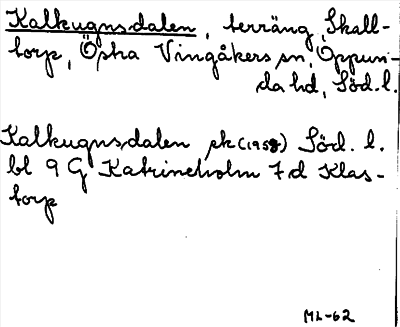 Kalkugnsdalen, terräng, Skall-
torp, Östra Vingåkers sn, Oppun-
da hd, Söd.l.
Kalkugnsdalen ek (1958) Söd. l.
bl 9 G Katrineholm 7 d Klas-
torp
ML-62